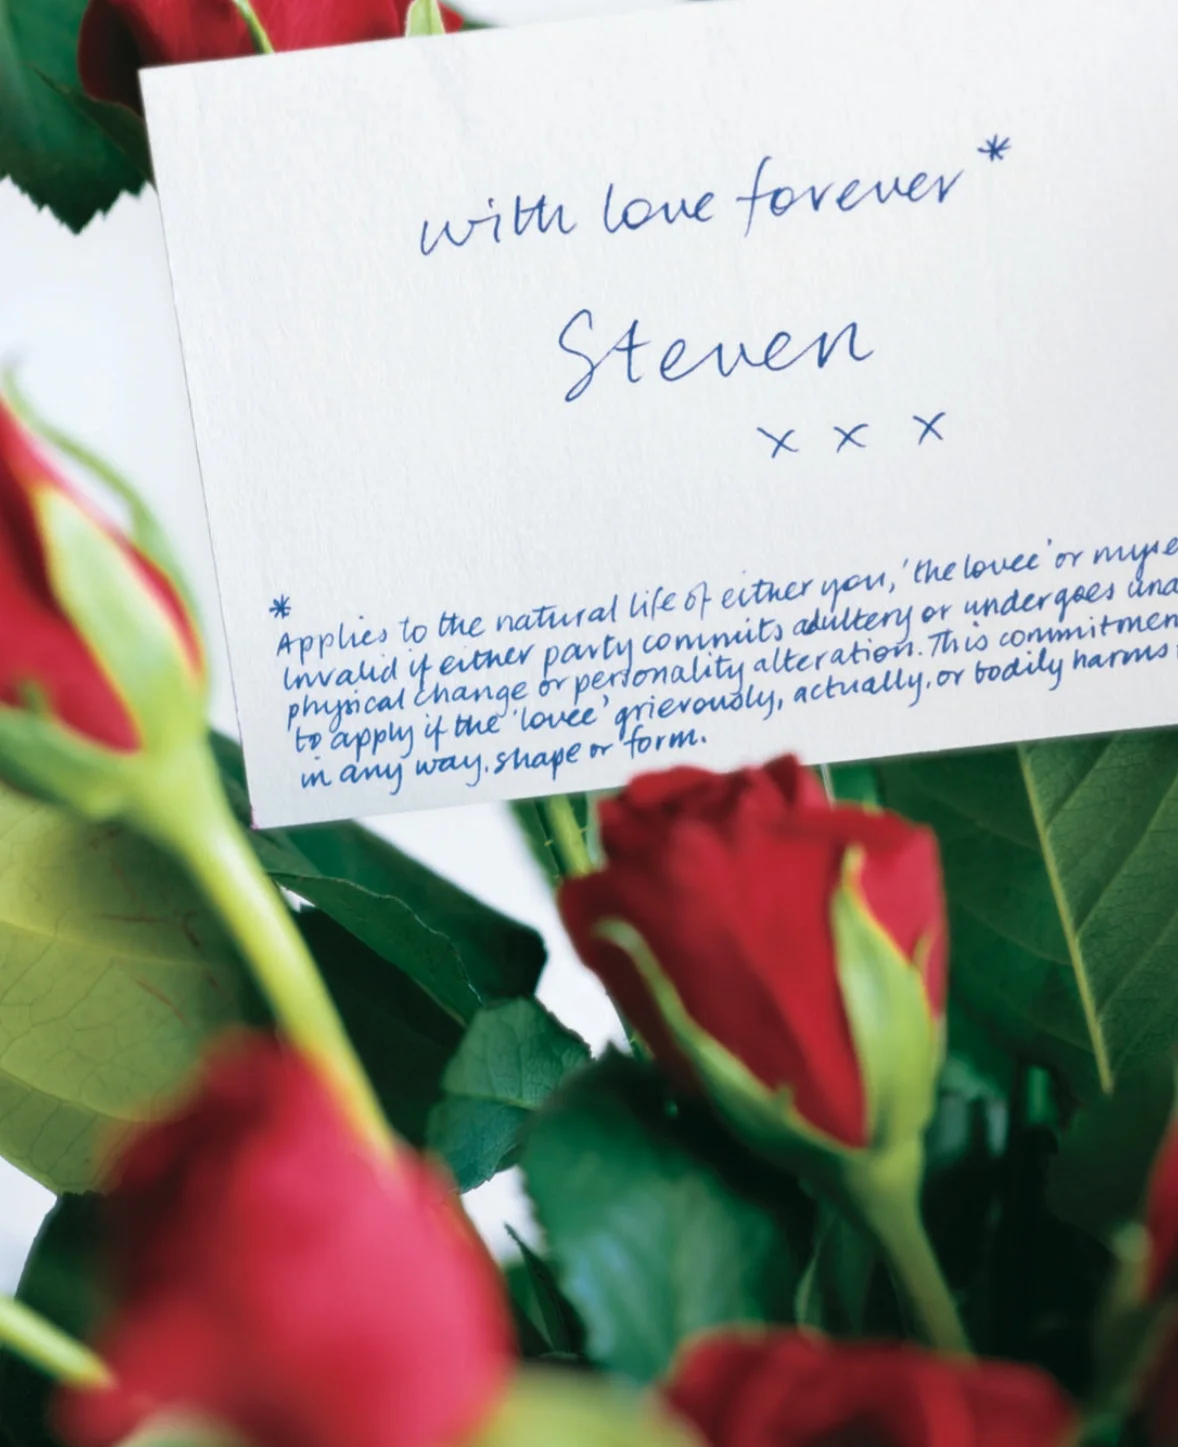 with love forever*
Steven
x x x
*
Applies to the natural life of either you, 'the lovee' or
invalid if either party commits adultery or undergoes
physical change or personality alteration. This
to apply if the 'lovee' grievously, actually, or bodily harms
in any way, shape or form.